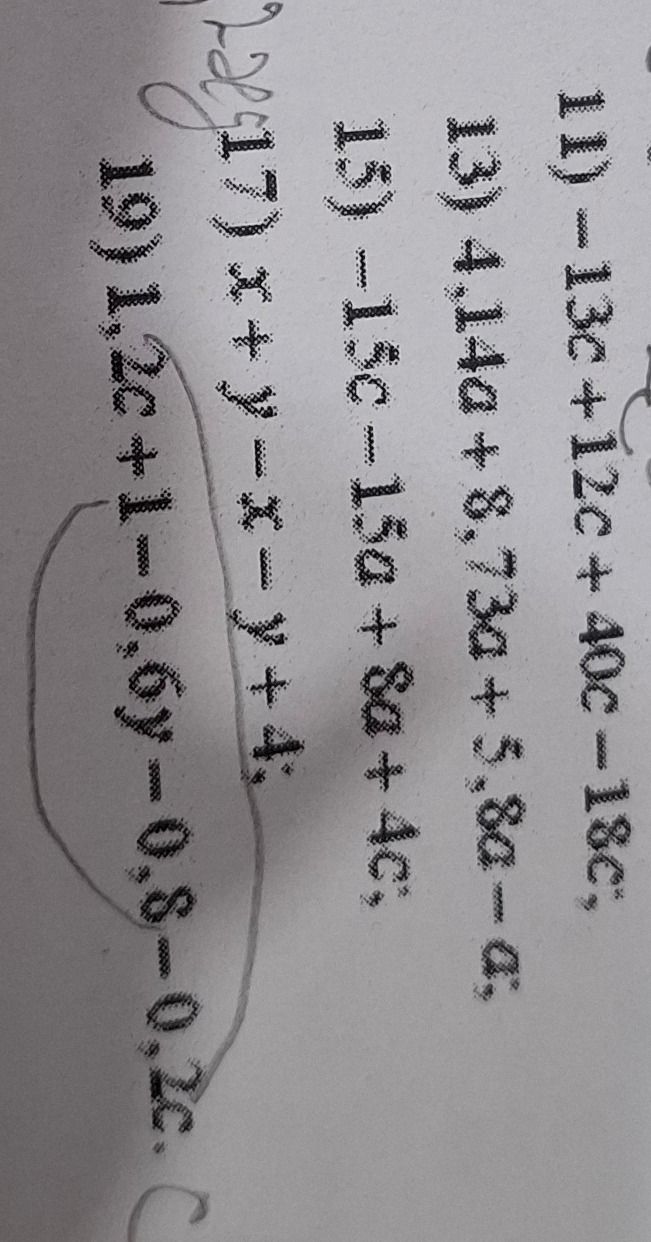 11) −13c + 12c + 40c − 18c;
13) 4,14a + 8,73a + 5,8a − a;
15) −15c − 15a + 8a + 4c;
17) x + y − x − y + 4;
19) 1,2c + 1 − 0,6y − 0,8 − 0,2c.